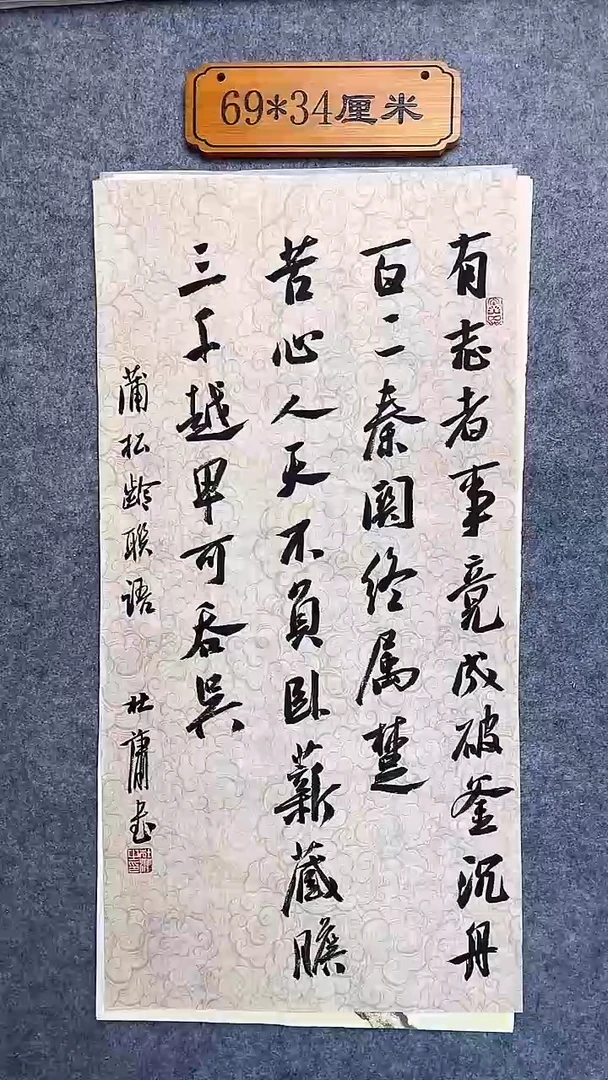 69*34厘米
有志者事竟成破釜沉舟
百二秦関终属楚
苦心人天不負卧薪藏膽
三千越甲可吞吴
蒲松龄联语
杜 书